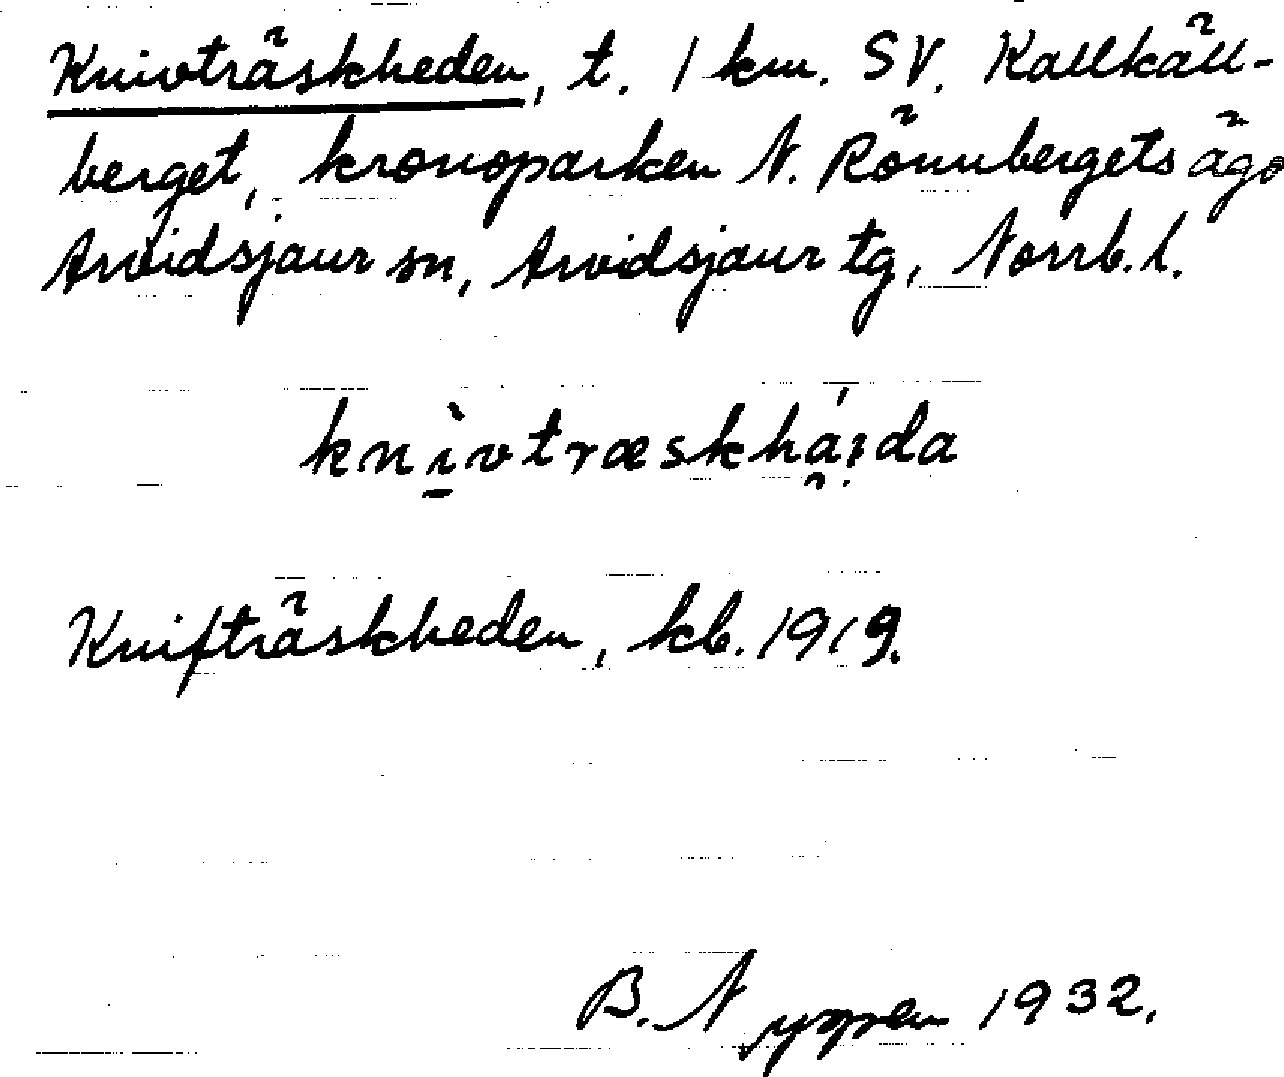 Knivträskheden, t. 1 km. SV. Kallkäll-
berget, kronoparken N. Rönnbergets ägo
Arvidsjaur sn, Arvidsjaur tg, Norrb. l.
knìvtræskhá̤i̤da
Knifträskheden, kb. 1919.
B. Nygren 1932.